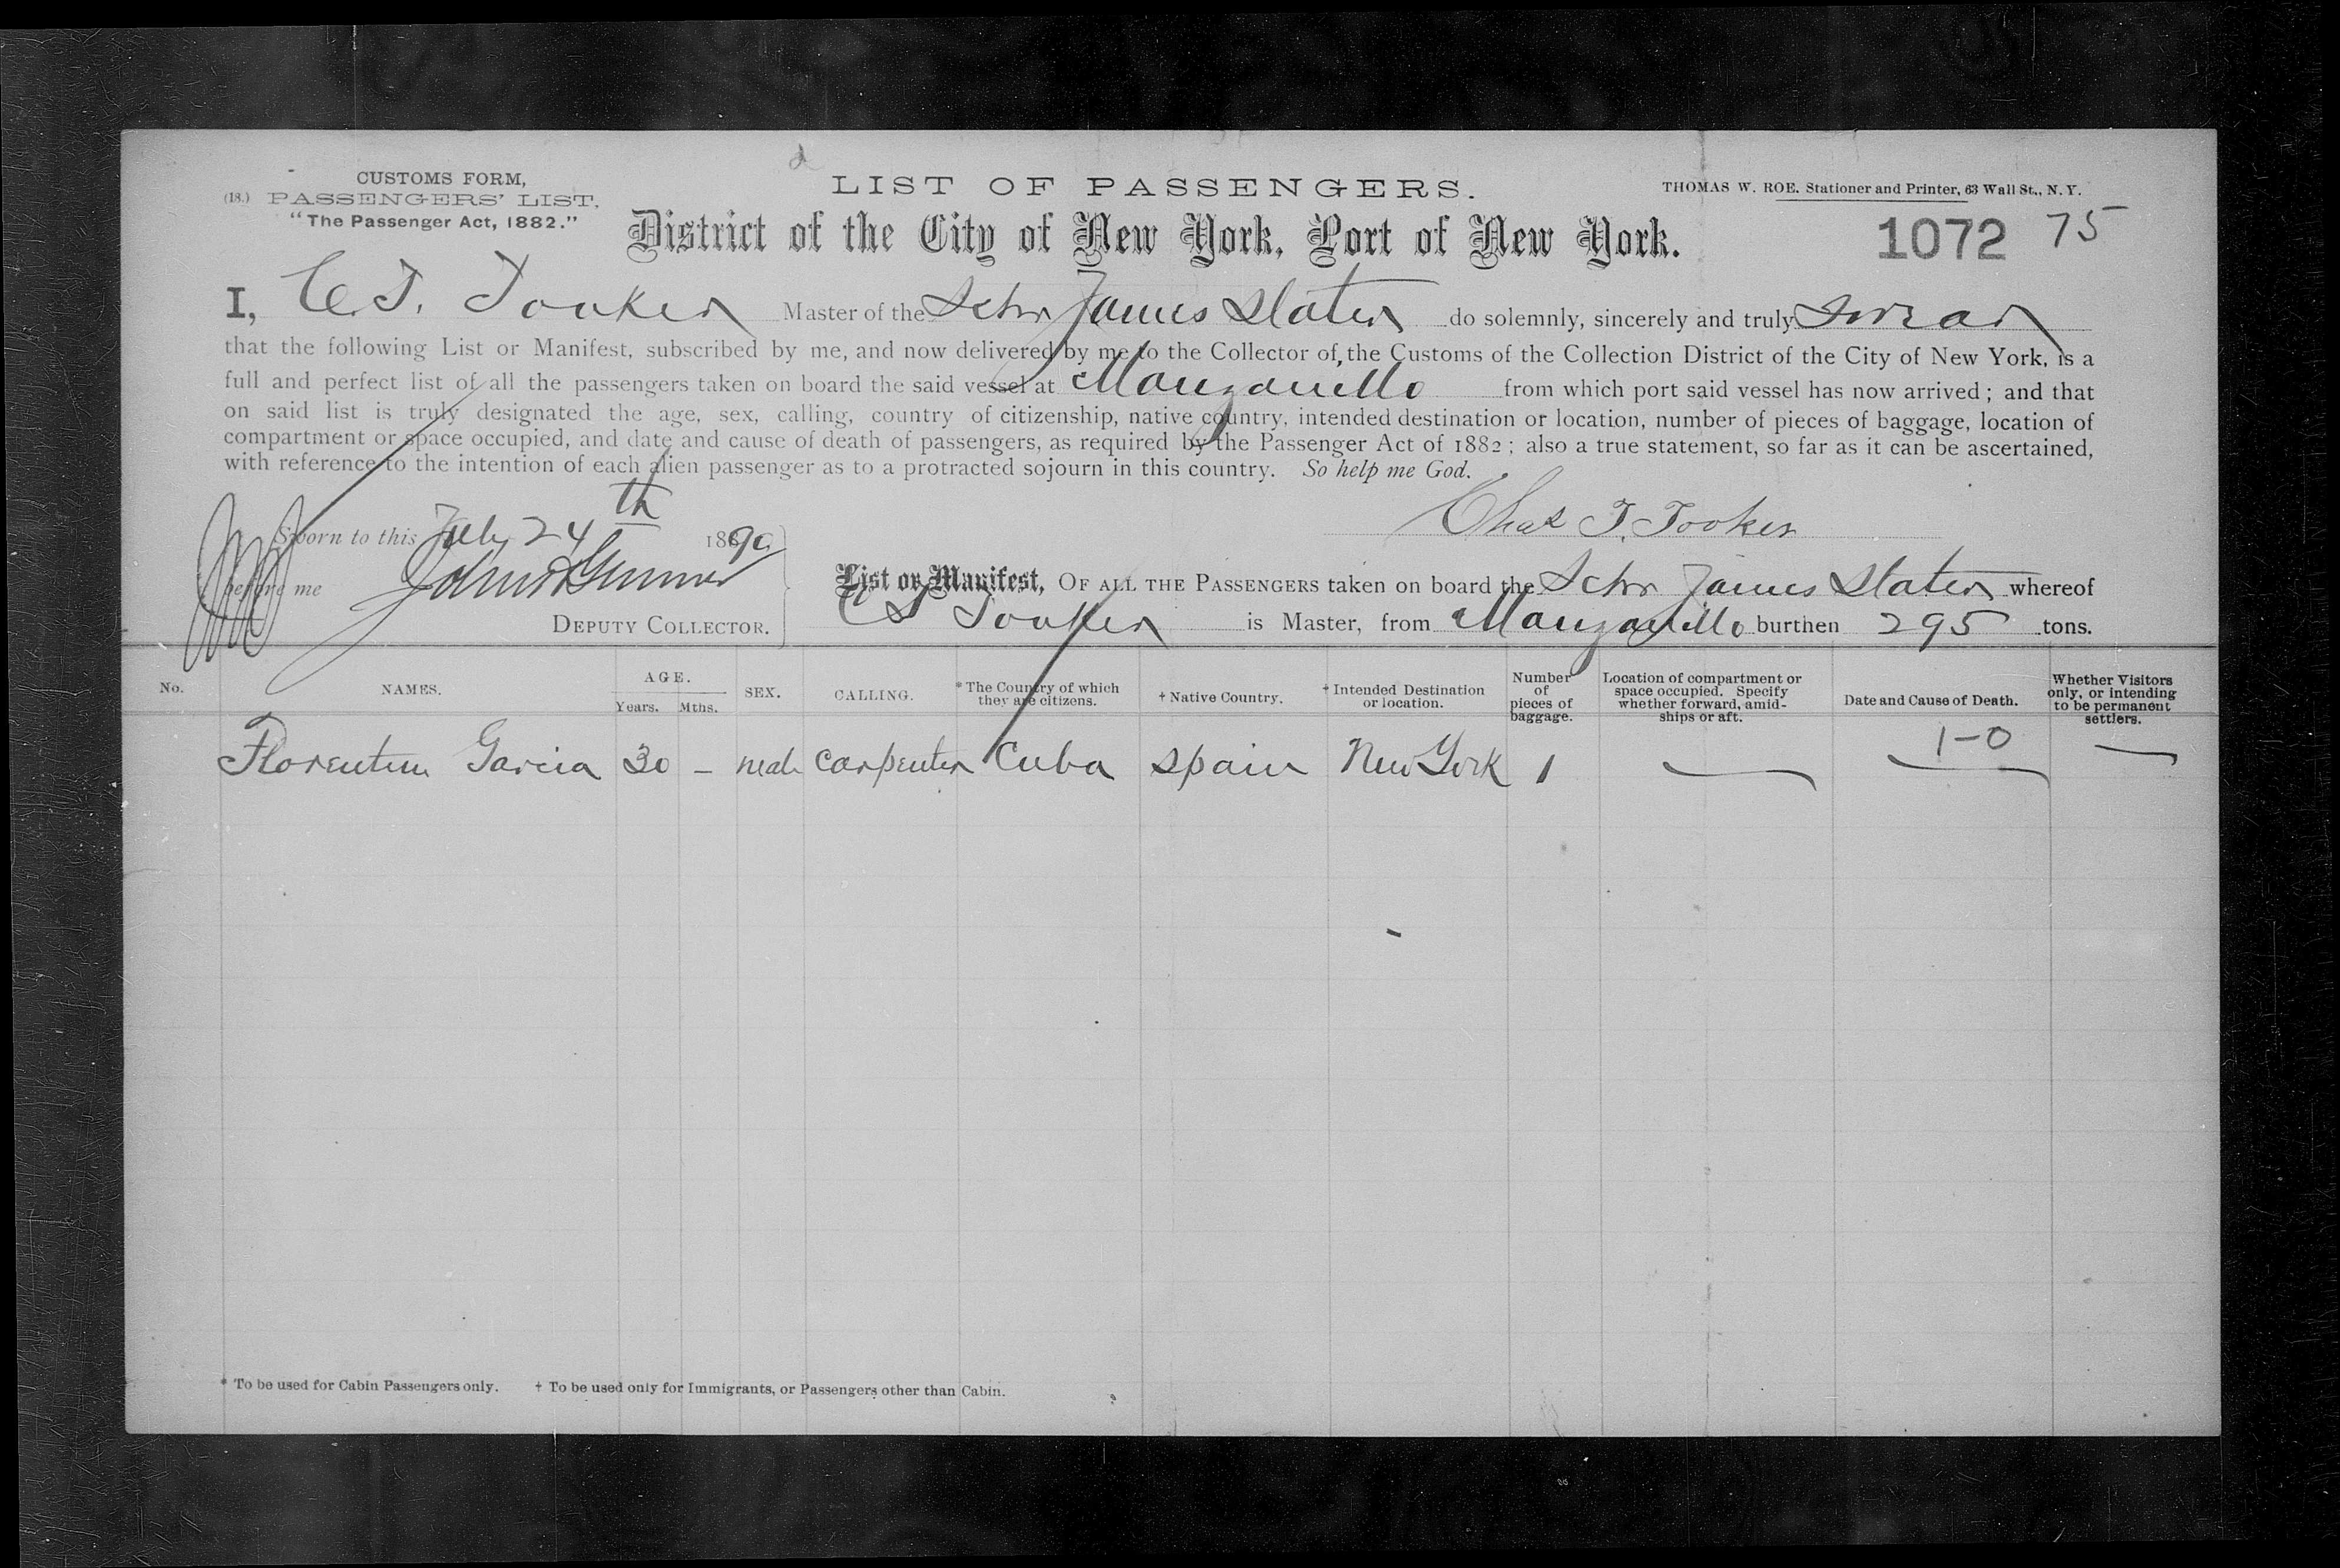 d
CUSTOMS FORM,
(18.) PASSENGERS' LIST,
"The Passenger Act, 1882."
LIST OF PASSENGERS.
THOMAS W. ROE. Stationer and Printer, 63 Wall St., N. Y.
District of the City of New York, Port of New York.
1072 75
I, C. T. Tooker Master of the Schr James Slater do solemnly, sincerely and truly swear
that the following List or Manifest, subscribed by me, and now delivered by me to the Collector of the Customs of the Collection District of the City of New York, is a
full and perfect list of all the passengers taken on board the said vessel at Manzanillo from which port said vessel has now arrived; and that
on said list is truly designated the age, sex, calling, country of citizenship, native country, intended destination or location, number of pieces of baggage, location of
compartment or space occupied, and date and cause of death of passengers, as required by the Passenger Act of 1882; also a true statement, so far as it can be ascertained,
with reference to the intention of each alien passenger as to a protracted sojourn in this country. So help me God.
Sworn to this July 24th 1890
Chas T. Tooker
before me
DEPUTY COLLECTOR.
List or Manifest, OF ALL THE PASSENGERS taken on board the Schr James Slater whereof
C T Tooker is Master, from Manzanillo burthen 295 tons.
No. NAMES. AGE. Years. Mths. SEX. CALLING. * The Country of which they are citizens. † Native Country. † Intended Destination or location. Number of pieces of baggage. Location of compartment or space occupied. Specify whether forward, amid-ships or aft. Date and Cause of Death. Whether Visitors only, or intending to be permanent settlers.
1-0
Florentin Garcia 30 – male carpenter Cuba Spain New York 1 — — —
* To be used for Cabin Passengers only. † To be used only for Immigrants, or Passengers other than Cabin.